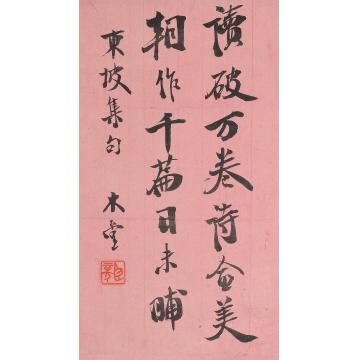 讀破万卷诗愈美
朝作千篇日未晡
東坡集句 木堂